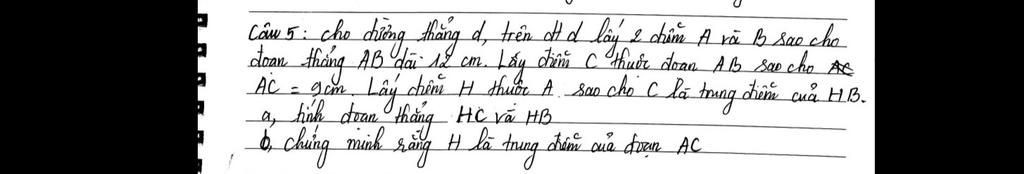 Câu 5: cho đường thẳng d, trên đt d lấy 2 điểm A và B sao cho
đoạn thẳng AB dài 12 cm. Lấy điểm C thuộc đoạn AB sao cho AC
AC = 9cm. Lấy điểm H thuộc A sao cho C là trung điểm của HB.
a, tính đoạn thẳng HC và HB
b, chứng minh rằng H là trung điểm của đoạn AC